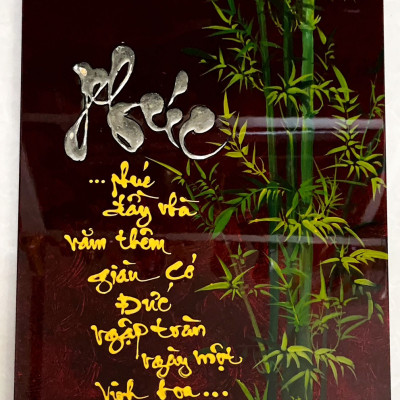 Phúc
... phúc
đầy nhà
năm thêm
giàu có
Đức
ngập tràn
ngày một
vinh hoa ...